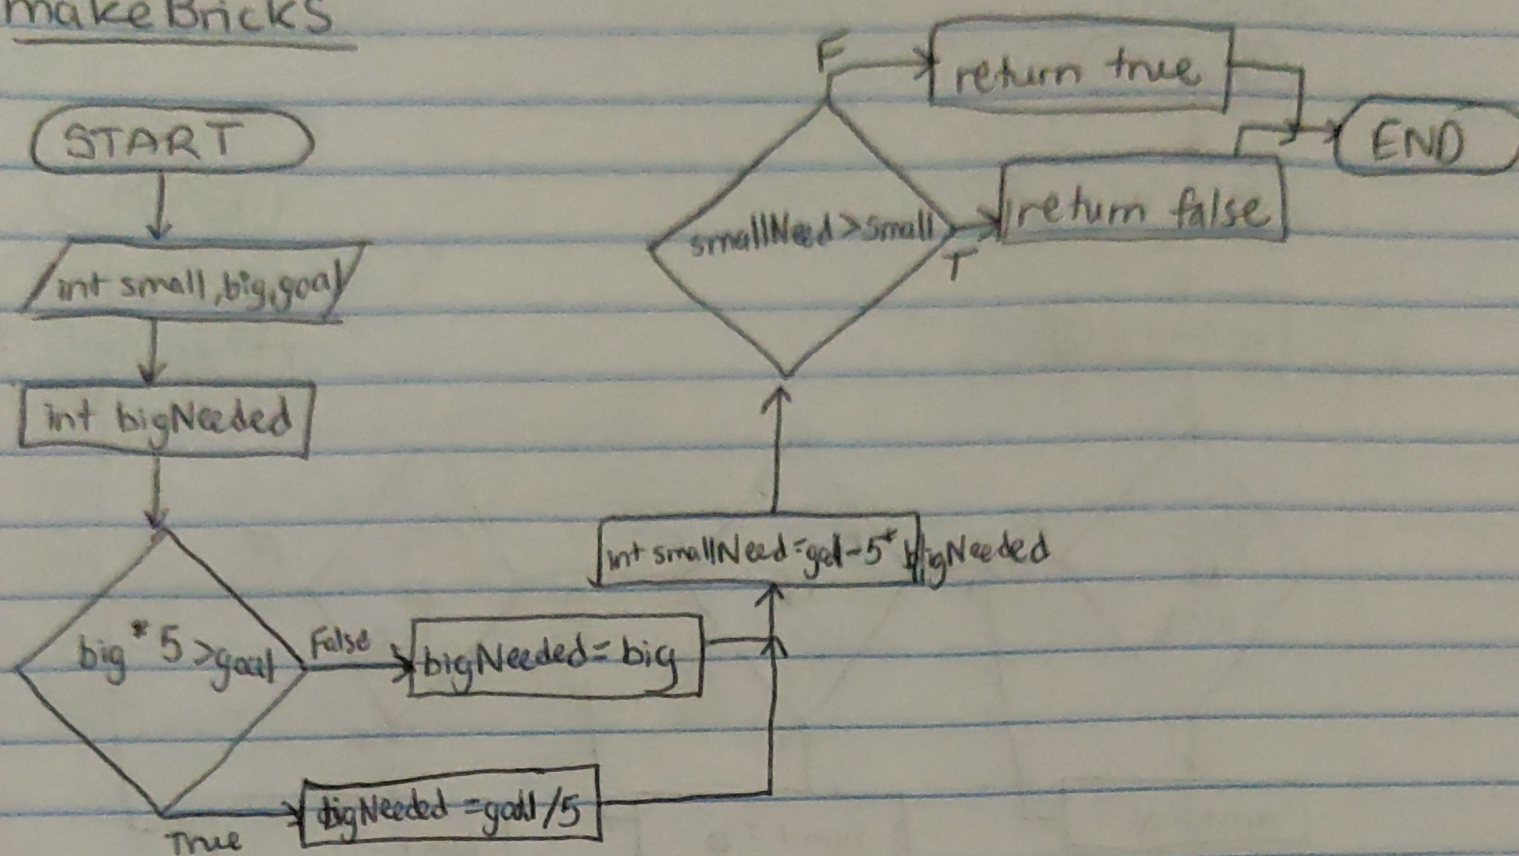 makeBricks
START
int small, big, goal
int bigNeeded
big * 5 > goal
False
bigNeeded = big
True
bigNeeded = goal / 5
int smallNeed = goal - 5 * bigNeeded
smallNeed > small
F
return true
T
return false
END